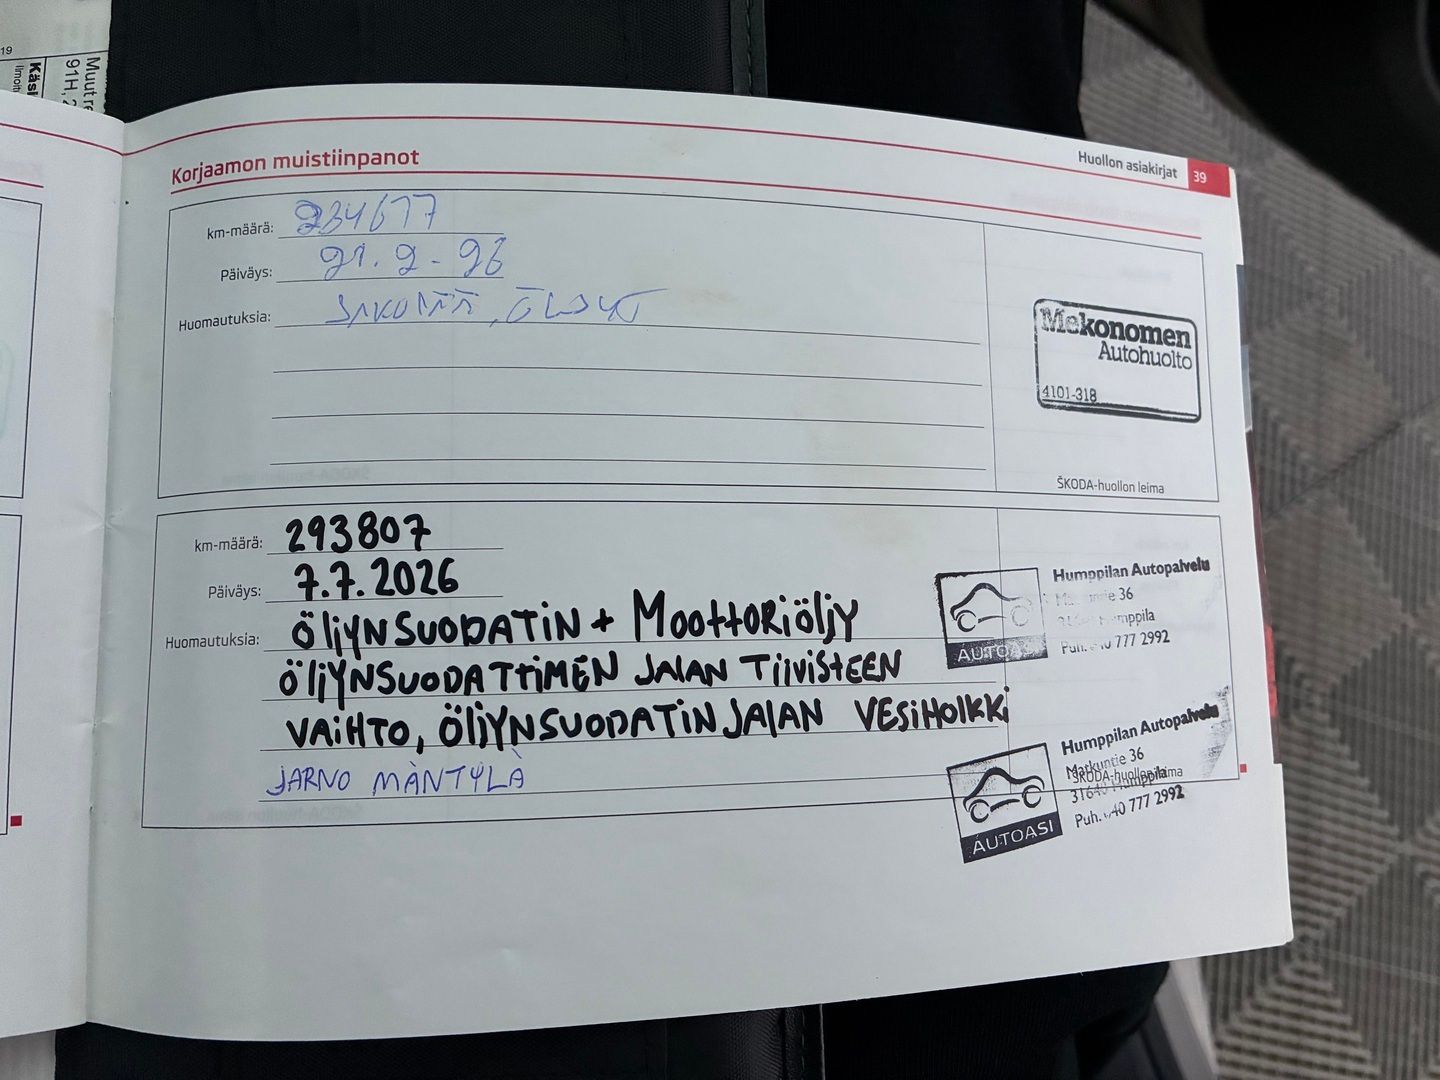 19
Käsi
Ilmoit
Muut re
91H, 2
Korjaamon muistiinpanot
Huollon asiakirjat 39
km-määrä: 234677
Päiväys: 21.2-26
Huomautuksia:
Mekonomen
Autohuolto
4101-318
ŠKODA-huollon leima
km-määrä: 293807
Päiväys: 7.7.2026
Huomautuksia: ÖLJYNSUODATIN + MOOTTORIÖLJY
ÖLJYNSUODATTIMEN JALAN TIIVISTEEN
VAIHTO, ÖLJYNSUODATINJALAN VESIHOLKKI
JARNO MÄNTYLÄ
AUTOASI
Humppilan Autopalvelu
36
Humppila
Puh. 040 777 2992
AUTOASI
Humppilan Autopalvelu
Matkuntie 36
ŠKODA-huollon leima
31640 Humppila
Puh. 040 777 2992